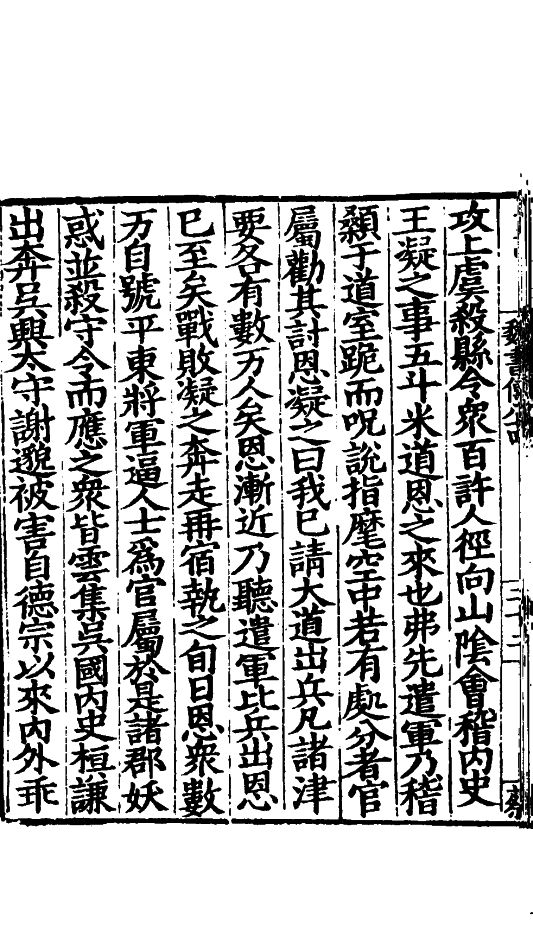 攻上虞殺縣令衆百許人徑向山陰會稽內史
王凝之事五斗米道恩之來也弗先遣軍乃稽
顙于道室跪而呪說指麾空中若有處分者官
屬勸其討恩凝之曰我已請大道出兵凡諸津
要各有數万人矣恩漸近乃聽遣軍比兵出恩
已至矣戰敗凝之奔走再宿執之旬日恩衆數
万自號平東將軍逼人士爲官屬於是諸郡妖
惑並殺守令而應之衆皆雲集吳國內史桓謙
出奔吳興太守謝邈被害自德宗以來內外乖